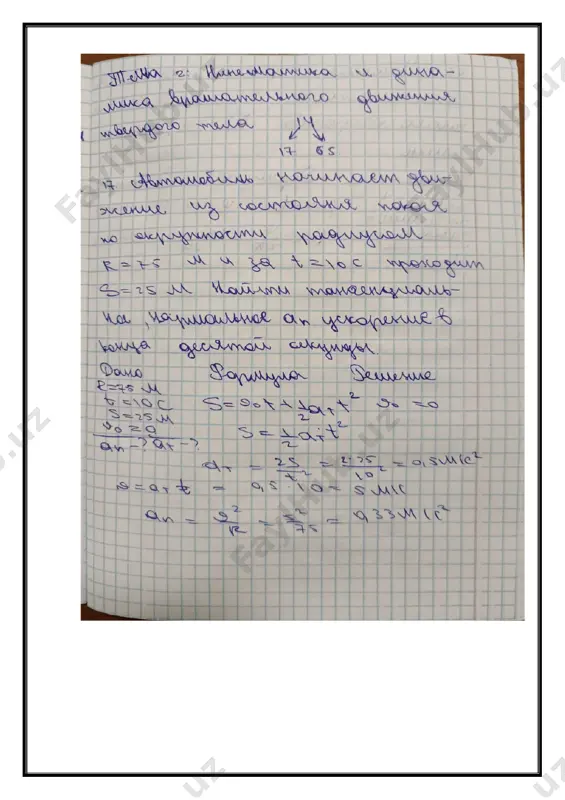 Тема 2: Кинематика и дина-
мика вращательного движения
твердого тела 14
17 65
17 Автомобиль начинает дви-
жение из состояния покоя
по окружности радиусом
R=75 м и за t=10с проходит
S=25 м Найти тангенциаль-
ное, нормальное an ускорение в
конца десятой секунды
Дано Формула Решение
R=75 м
t=10с S=υ₀t+½aτt² υ₀=0
S=25м
υ₀=0 S=½aτt²
an-? aτ-?
aτ = 2S/t² = 2·25/10² = 0,5м/с²
υ=aτ t = 0,5·10= 5м/с
an = υ²/R = 5²/75 = 0,33м/с²
FaylHub.uz
FaylHub.uz
FaylHub.uz